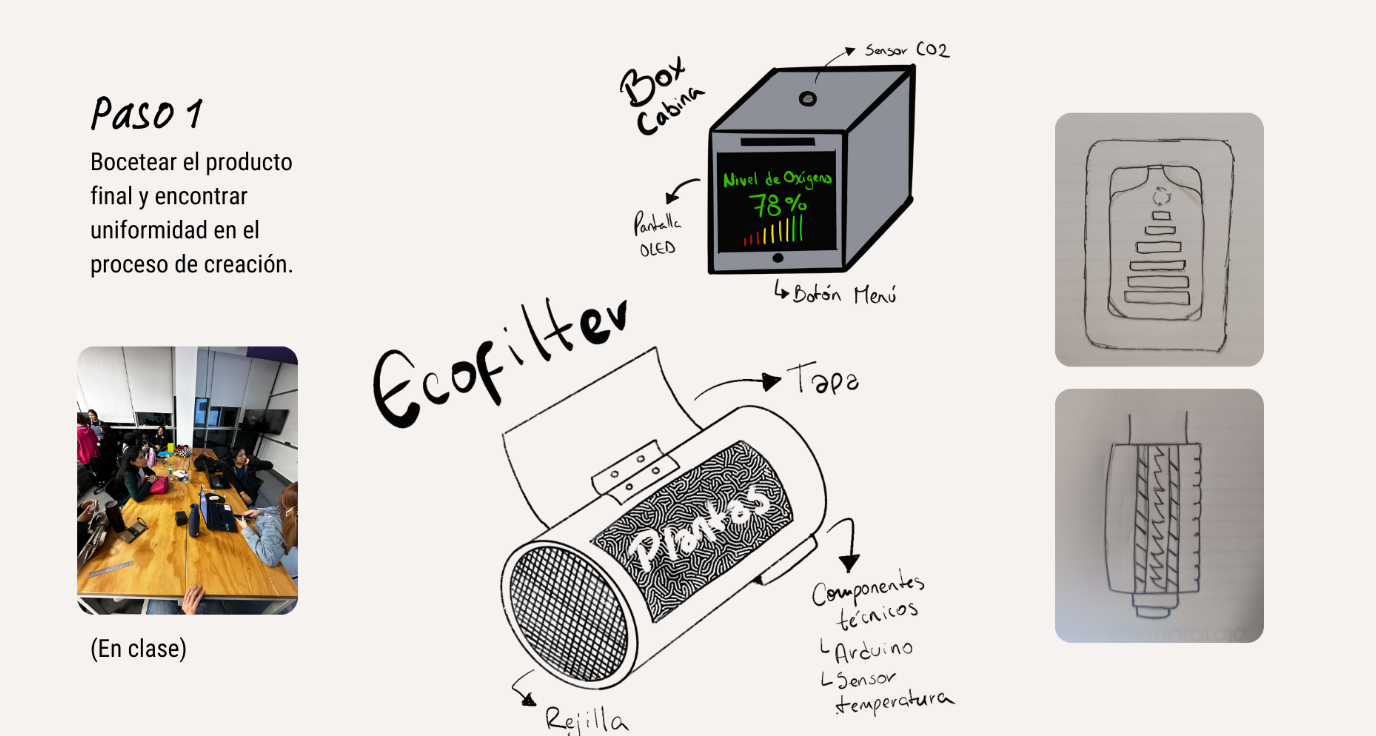 Paso 1
Bocetear el producto
final y encontrar
uniformidad en el
proceso de creación.
(En clase)
Box
Cabina
Sensor CO2
Nivel de Oxígeno
78%
Pantalla
OLED
Botón Menú
Ecofilter
Tapa
Plantas
Componentes
técnicos
Arduino
Sensor
temperatura
Rejilla